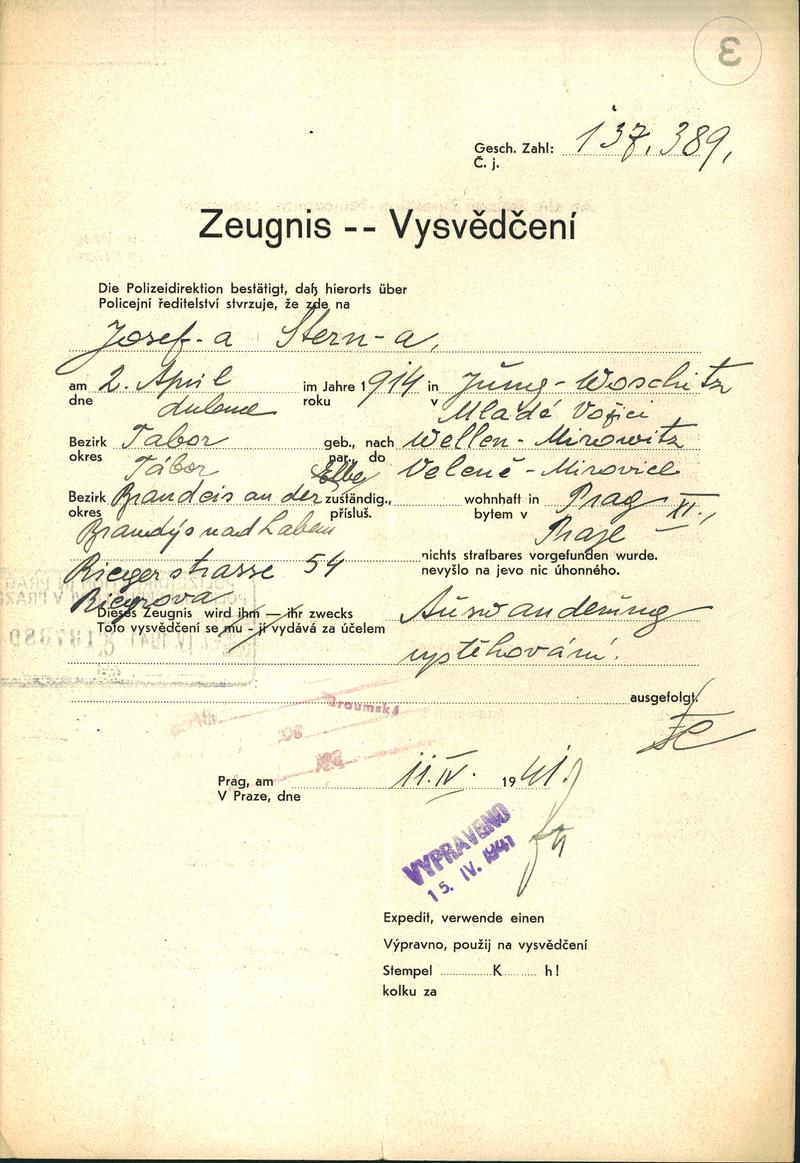 3
Gesch. Zahl: 137.389,
Č. j.
Zeugnis -- Vysvědčení
Die Polizeidirektion bestätigt, daß hierorts über
Policejní ředitelství stvrzuje, že zde na
Josef-a Stern-a,
am 2. April im Jahre 1914 in Jung-Woschitz
dne dubna roku v Mladé Vožici
Bezirk Tabor geb., nach Wellen-Mirowitz
okres Tábor nar., do Veleně-Mirovice
Elbe
Bezirk Brandeis an der zuständig., wohnhaft in Prag XI.,
okres Brandýs nad Labem přísluš. bytem v Praze
Riegerstrasse 54 nichts strafbares vorgefunden wurde.
Riegrova nevyšlo na jevo nic úhonného.
Dieses Zeugnis wird ihm — ihr zwecks Auswanderung
Toto vysvědčení se mu - jí vydává za účelem vystěhování.
ausgefolgt.
Broumská
Prag, am 11.IV. 1941.
V Praze, dne
VYPRAVENO
15. IV. 1941
Expedit, verwende einen
Výpravno, použij na vysvědčení
Stempel K h!
kolku za